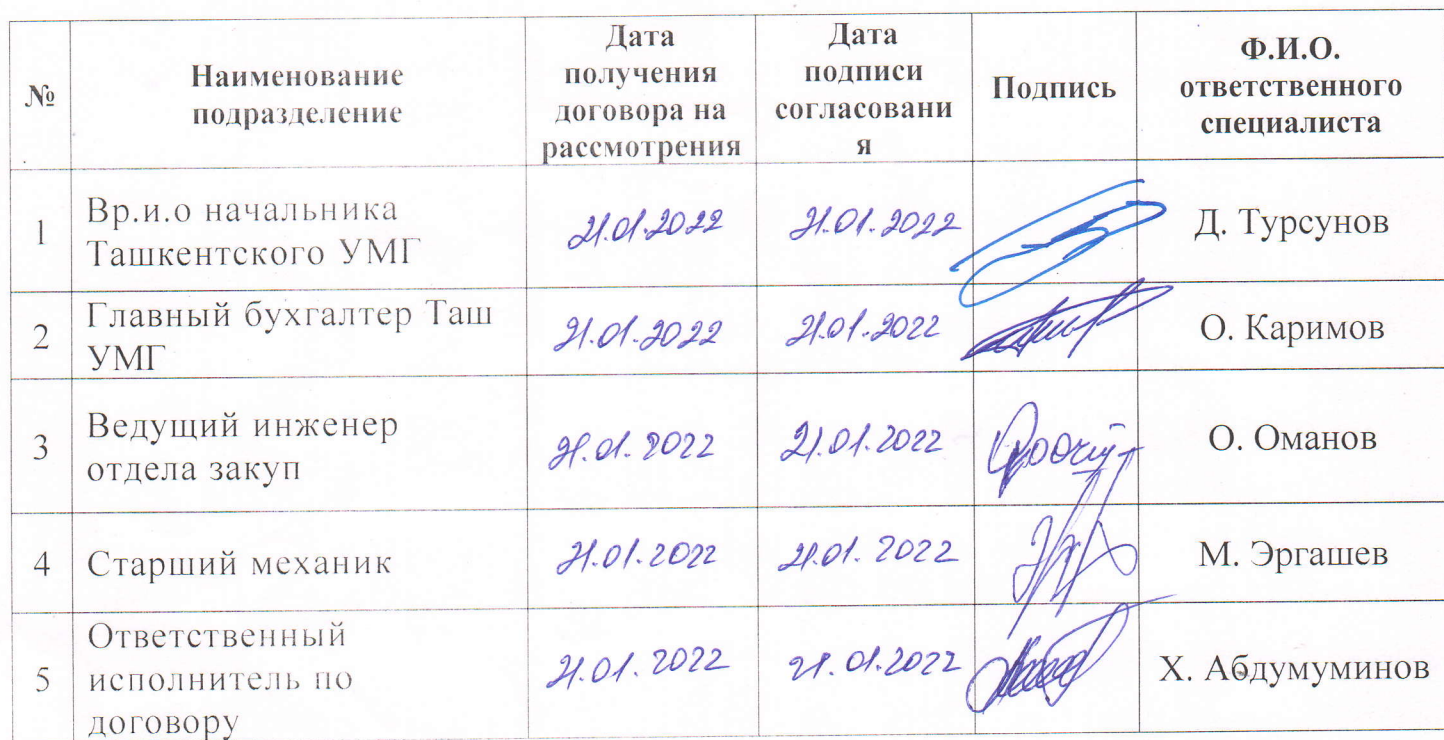 №
Наименование
подразделение
Дата
получения
договора на
рассмотрения
Дата
подписи
согласовани
я
Подпись
Ф.И.О.
ответственного
специалиста
1
Вр.и.о начальника
Ташкентского УМГ
21.01.2022
21.01.2022
Д. Турсунов
2
Главный бухгалтер Таш
УМГ
21.01.2022
21.01.2022
О. Каримов
3
Ведущий инженер
отдела закуп
21.01.2022
21.01.2022
О. Оманов
4
Старший механик
21.01.2022
21.01.2022
М. Эргашев
5
Ответственный
исполнитель по
договору
21.01.2022
21.01.2022
Х. Абдумуминов